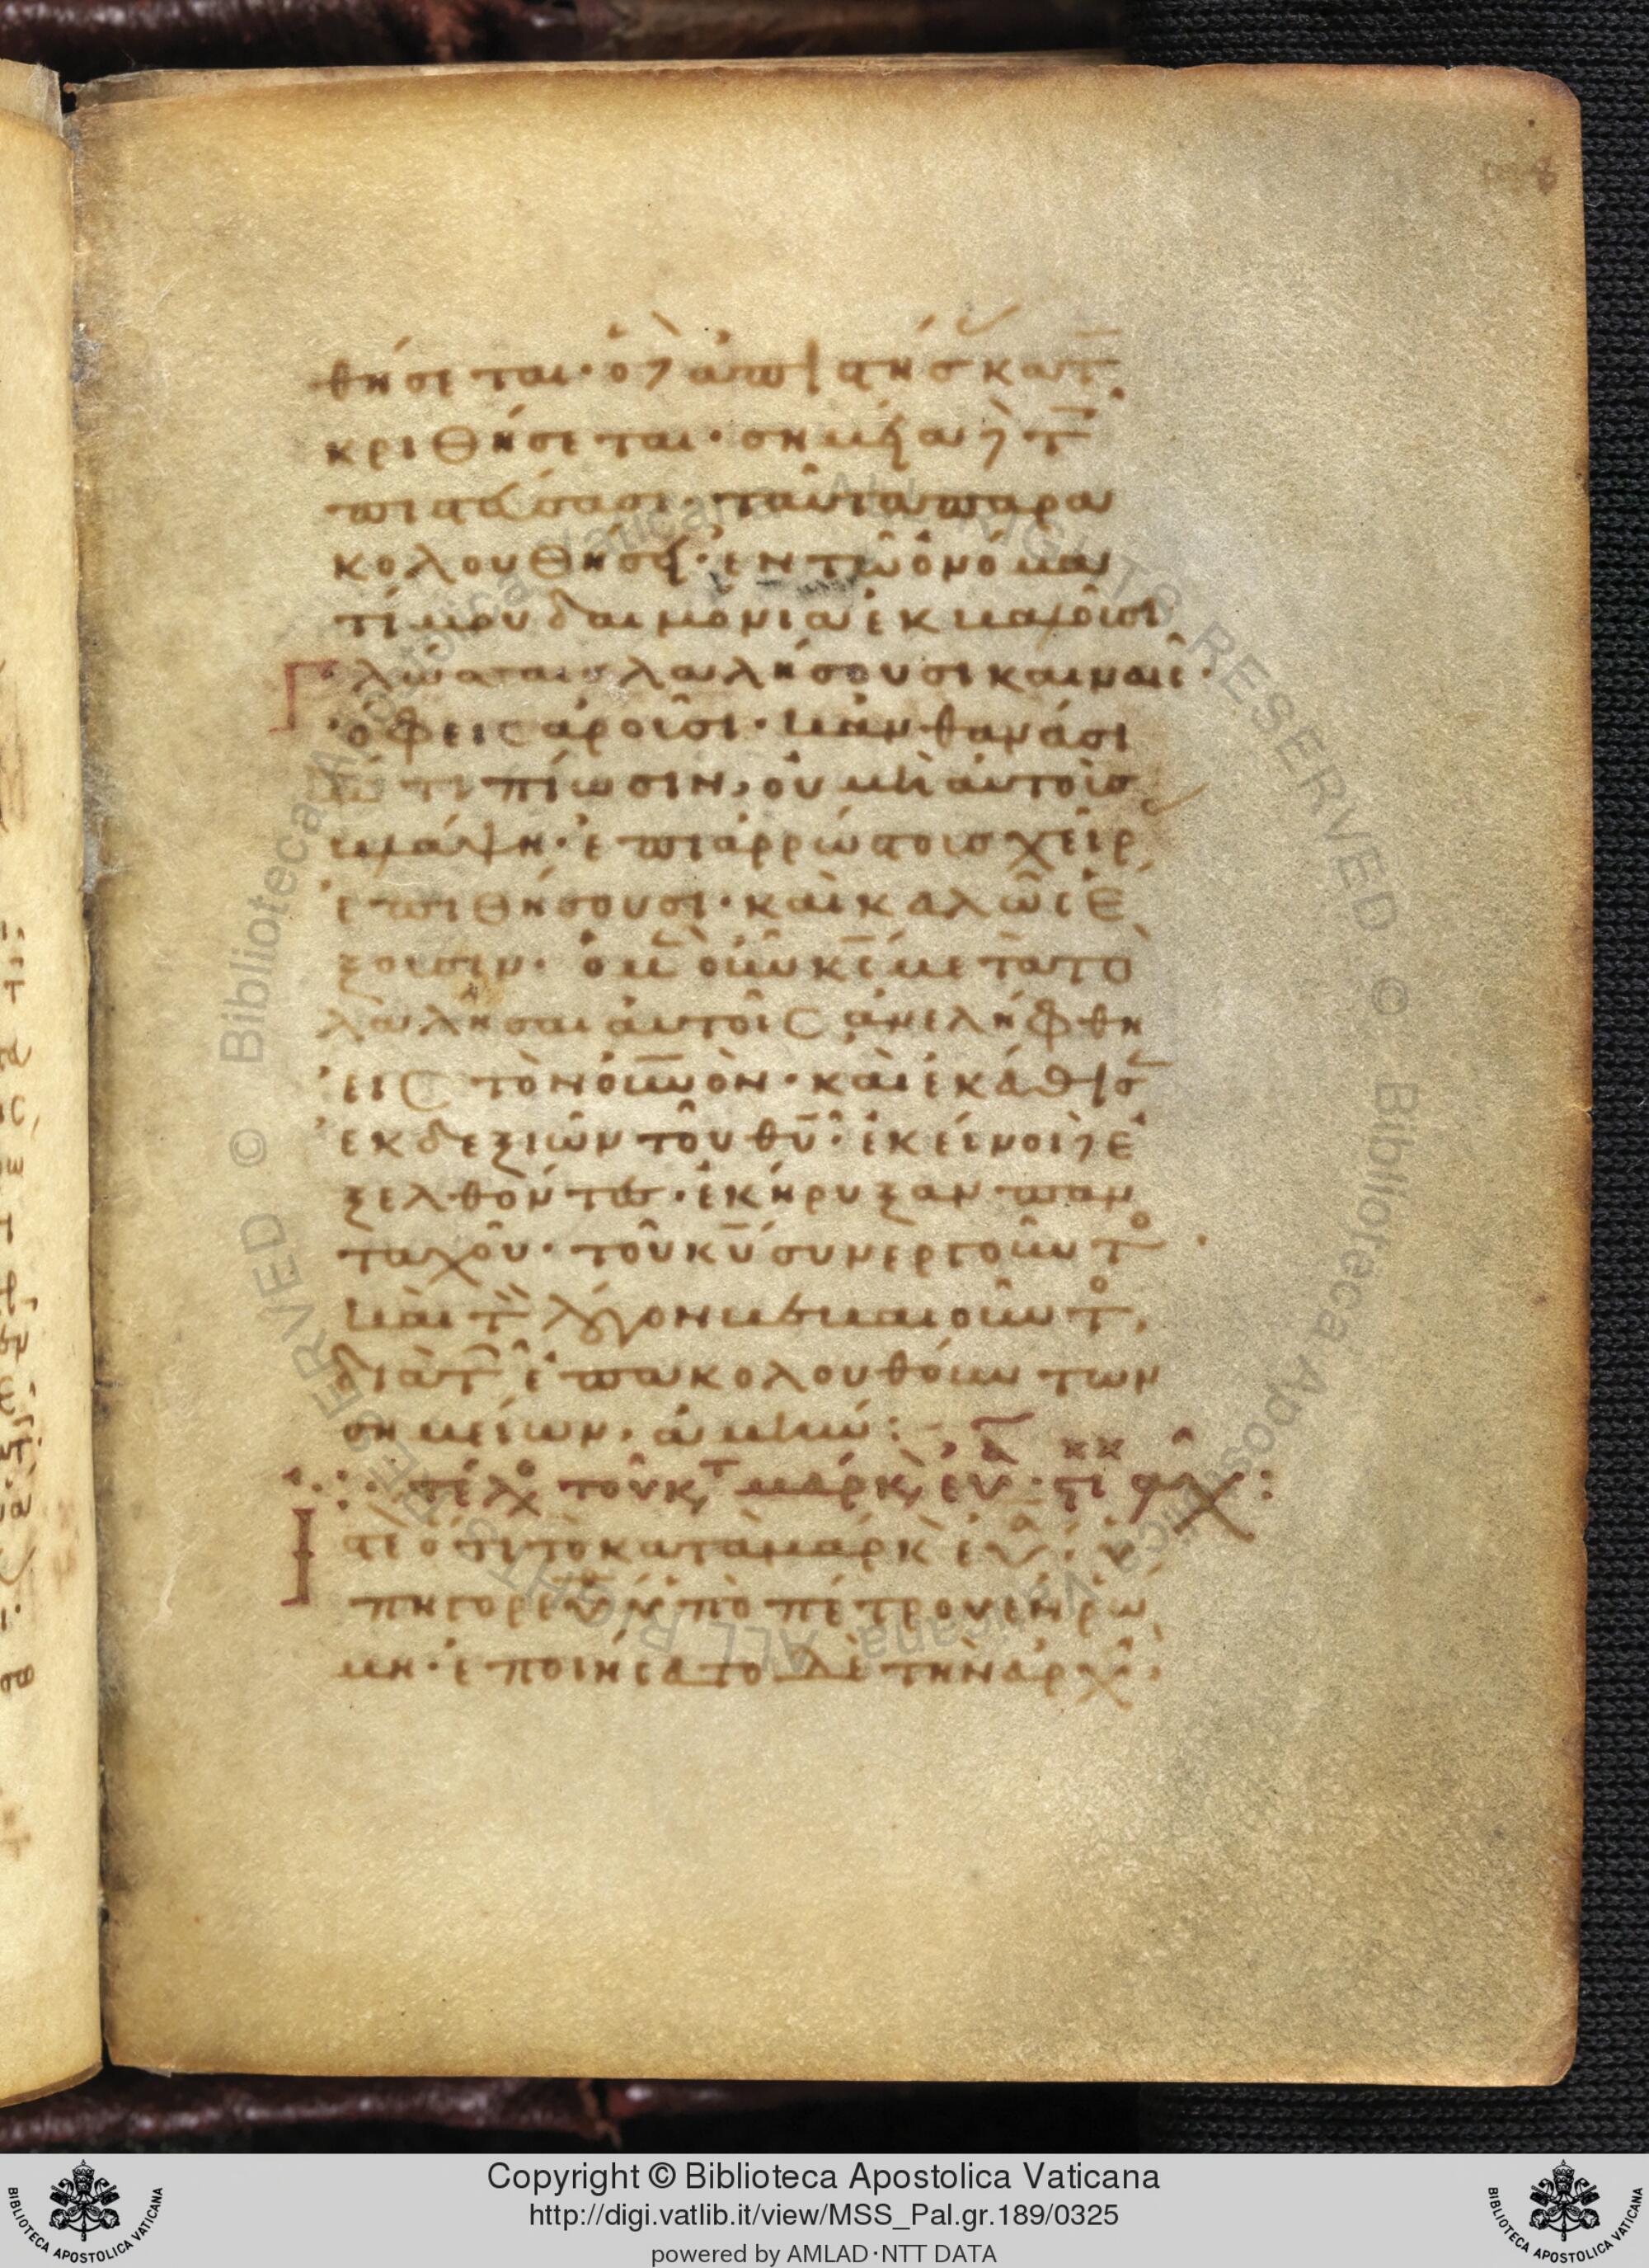 θήσεται· ὁ δὲ ἀπιστήσας κατα
κριθήσεται· σημεῖα δὲ τοῖς
πιστεύσασι· ταῦτα παρα
κολουθήσει· ἐν τῷ ὀνόμα
τί μου δαιμόνια ἐκβαλοῦσι
Γλώσσαις λαλήσουσι καιναῖς·
ὄφεις ἀροῦσι· κἂν θανάσι
μόν τι πίωσιν, οὐ μὴ αὐτοὺς
βλάψῃ· ἐπὶ ἀρρώστους χεῖρας
ἐπιθήσουσι· καὶ καλῶς ἕ
ξουσιν· ὁ μὲν οὖν κς μετὰ τὸ
λαλῆσαι αὐτοῖς ἀνελήφθη
εἰς τὸν οὐνὸν· καὶ ἐκάθισεν
ἐκ δεξιῶν τοῦ θυ· ἐκεῖνοι δὲ ἐ
ξελθόντες· ἐκήρυξαν παν
ταχοῦ· τοῦ κυ συνεργοῦντος·
καὶ τὸν λόγον βεβαιοῦντος,
διὰ τῶν ἐπακολουθούντων
σημείων, ἀμήν:
τέλος τοῦ κατὰ μάρκον εὐαγγελίου· στίχοι αχ:
Ιστέον ὅτι τὸ κατὰ μάρκον εὐαγγέλιον, ὑ
πηγορεύθη ὑπὸ πέτρου ἐν ῥώ
μῃ· ἐποιήσατο δὲ τὴν ἀρχὴν
Copyright © Biblioteca Apostolica Vaticana
http://digi.vatlib.it/view/MSS_Pal.gr.189/0325
powered by AMLAD·NTT DATA
BIBLIOTECA APOSTOLICA VATICANA
BIBLIOTECA APOSTOLICA VATICANA
© Biblioteca Apostolica Vaticana ALL RIGHTS RESERVED
© Biblioteca Apostolica Vaticana ALL RIGHTS RESERVED